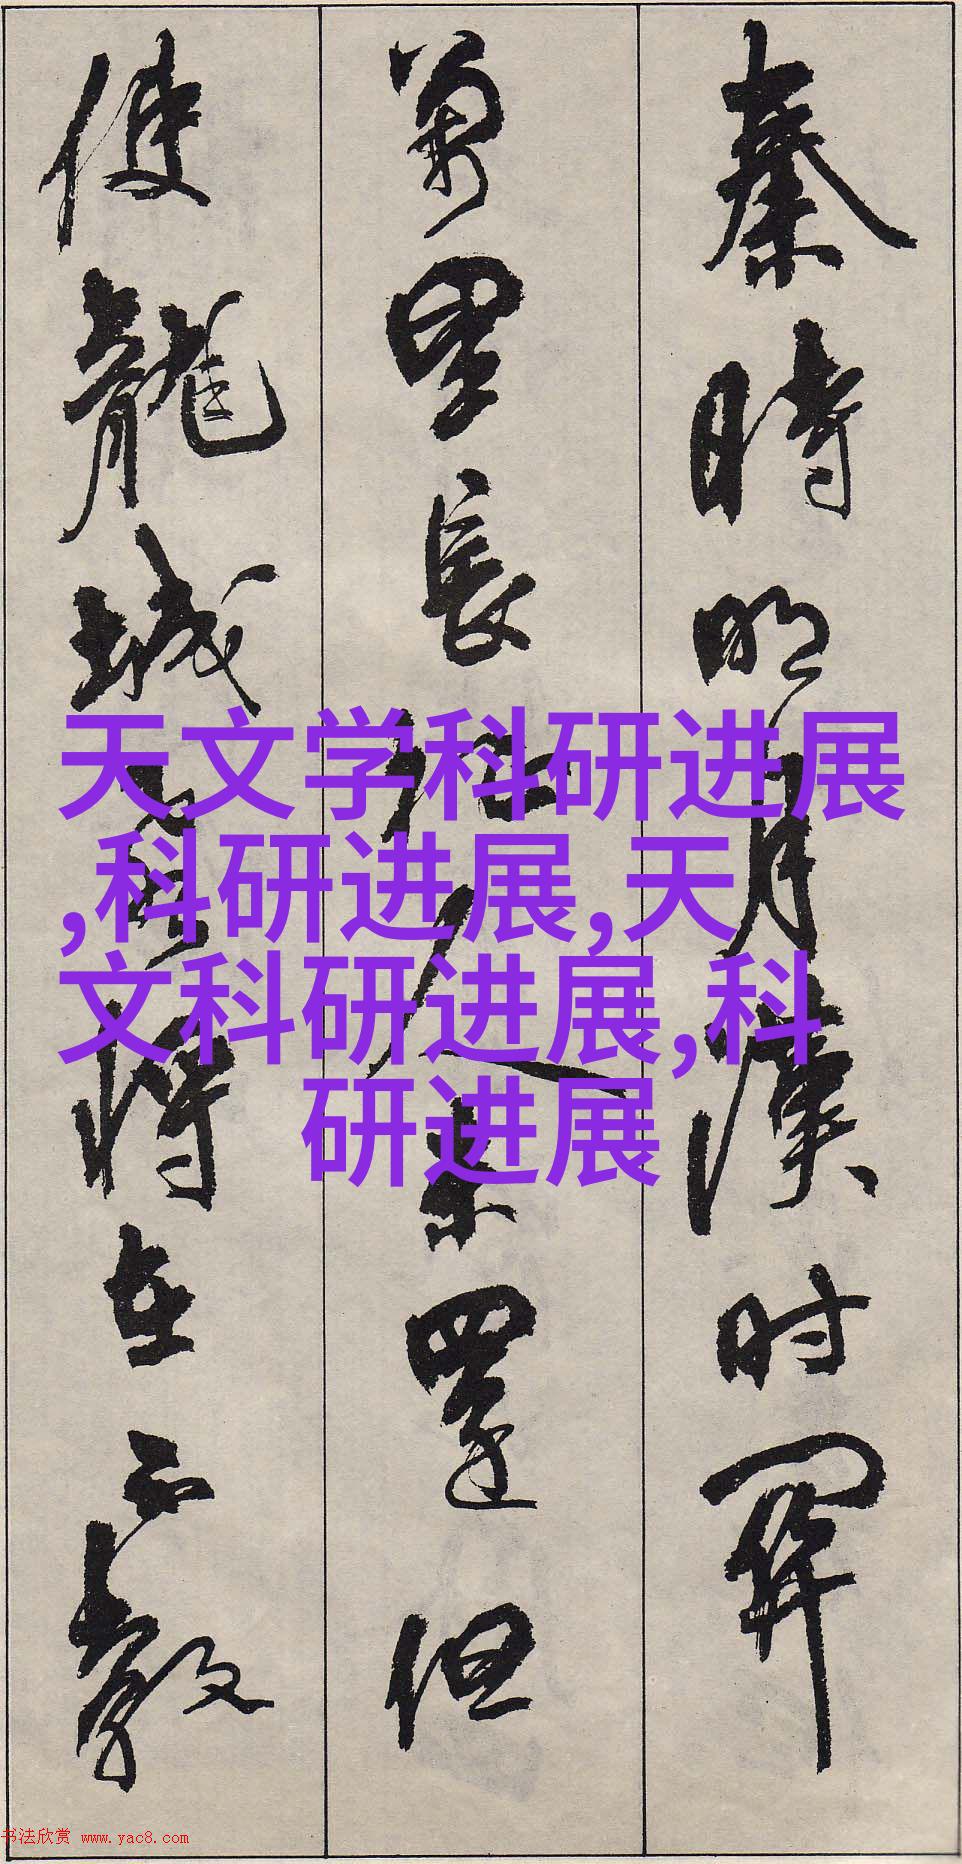 秦時明月漢时關
萬里長征人未還但
使龍城飛將在不教
天文学科研进展
,科研进展,天
文科研进展,科
研进展
书法欣赏 www.yac8.com